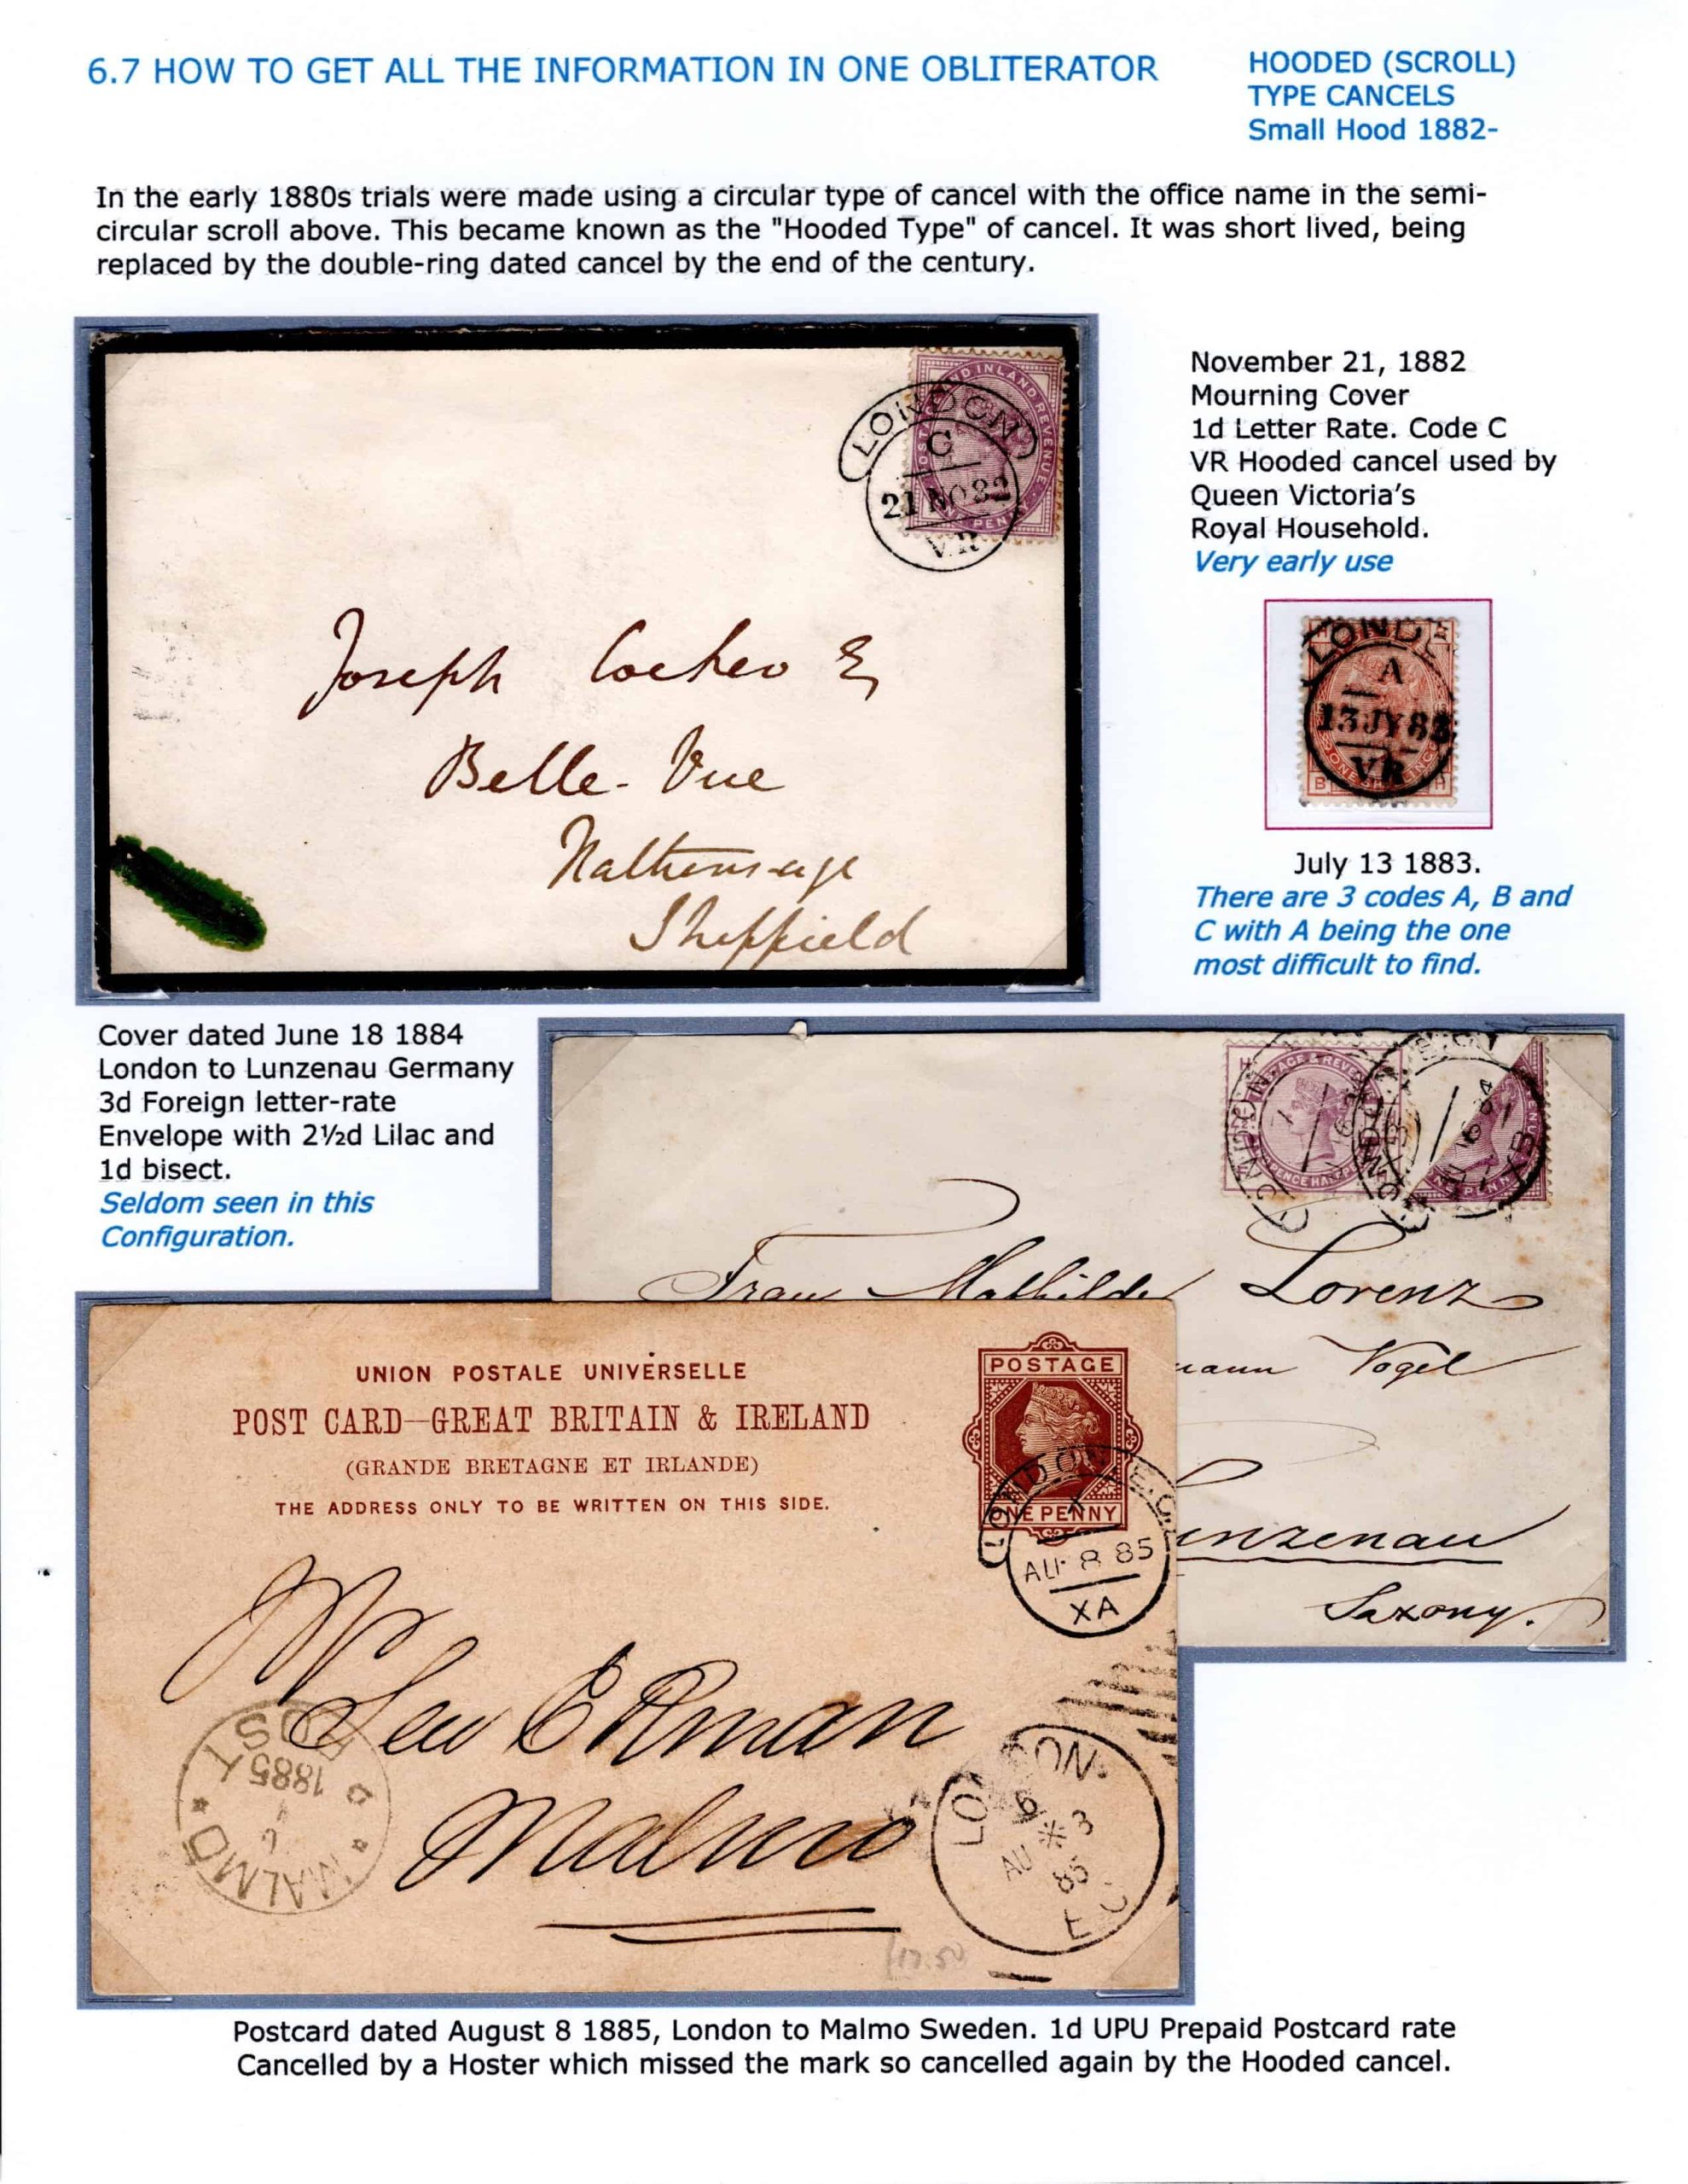 6.7 HOW TO GET ALL THE INFORMATION IN ONE OBLITERATOR
HOODED (SCROLL)
TYPE CANCELS
Small Hood 1882-
In the early 1880s trials were made using a circular type of cancel with the office name in the semi-
circular scroll above. This became known as the "Hooded Type" of cancel. It was short lived, being
replaced by the double-ring dated cancel by the end of the century.
LONDON
C
21 NO 82
VR
Joseph
Belle-Vue
Sheffield
November 21, 1882
Mourning Cover
1d Letter Rate. Code C
VR Hooded cancel used by
Queen Victoria's
Royal Household.
Very early use
A
13 JY 83
VR
July 13 1883.
There are 3 codes A, B and
C with A being the one
most difficult to find.
Cover dated June 18 1884
London to Lunzenau Germany
3d Foreign letter-rate
Envelope with 2½d Lilac and
1d bisect.
Seldom seen in this
Configuration.
Frau Mathilde Lorenz
Vogel
unzenau
Saxony.
UNION POSTALE UNIVERSELLE
POST CARD—GREAT BRITAIN & IRELAND
(GRANDE BRETAGNE ET IRLANDE)
THE ADDRESS ONLY TO BE WRITTEN ON THIS SIDE.
POSTAGE
ONE PENNY
LONDON E.C.
X
AU 8 85
XA
Malmo
MALMÖ
1885
LONDON
6
AU 3
85
E.C
£17.50
Postcard dated August 8 1885, London to Malmo Sweden. 1d UPU Prepaid Postcard rate
Cancelled by a Hoster which missed the mark so cancelled again by the Hooded cancel.